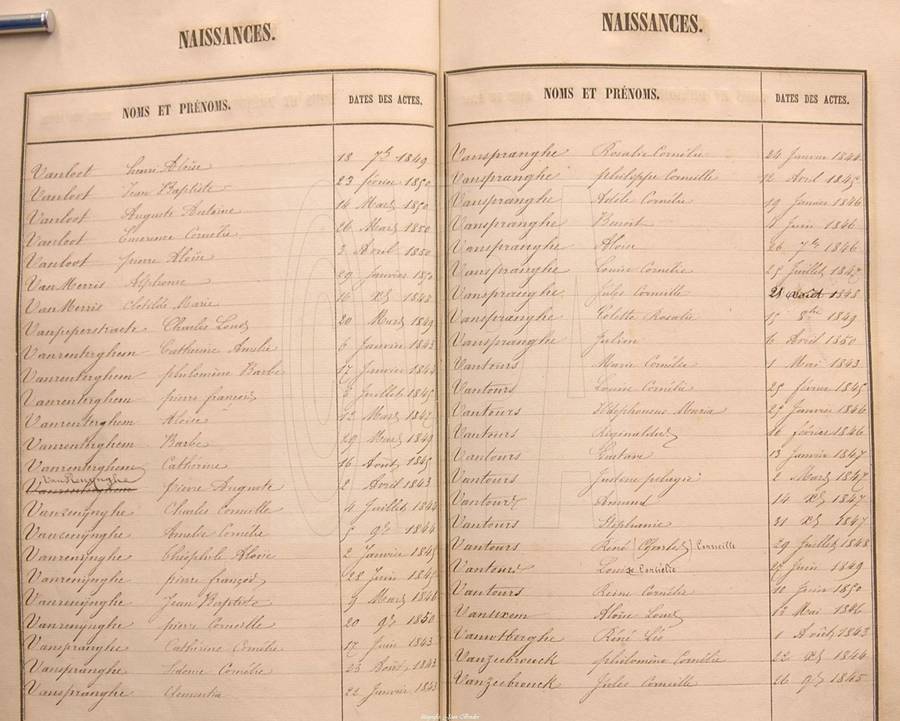 NAISSANCES.
NOMS ET PRÉNOMS. DATES DES ACTES.
Vanloot henri Aloïse 18 7bre 1849
Vanloot Jean Baptiste 23 février 1850
Vanloot Auguste Antoine 14 Mars 1850
Vanloot Emerence Cornélie 26 Mars 1850
Vanloot pierre Aloïse 3 Avril 1850
VanMerris Alphonse 29 Janvier 1850
VanMerris Clotilde Marie 16 1848
Vanpeperstraete Charles Louis 20 Mars 1849
Vanrenterghem Catherine Amelie 6 Janvier 1843
Vanrenterghem philomène Barbe 17 Janvier 1843
Vanrenterghem pierre françois 5 Juillet 1845
Vanrenterghem 12 Mars 1847
Vanrenterghem Barbe 29 Mars 1849
Vanrenterghem Cathérine 16 Août 1845
Vanrenynghe pierre Auguste 2 Avril 1843
Vanrenynghe Charles Corneille 4 Juillet 1844
Vanrenynghe Amelie Cornélie 5 9bre 1844
Vanrenynghe Théophile Aloïse 2 Janvier 1845
Vanrenynghe pierre françois 28 Juin 1847
Vanrenynghe Jean Baptiste 9 Mars 1848
Vanrenynghe pierre Corneille 20 9bre 1850
Vanspranghe Cathérine Cornélie 17 Juin 1843
Vanspranghe Sidonie Cornélie 23 Août 1843
Vanspranghe Clementia 22 Janvier
NAISSANCES.
NOMS ET PRÉNOMS. DATES DES ACTES.
Vanspranghe Rosalie Cornélie 24 Janvier
Vanspranghe philippe Corneille 12 Avril 1845
Vanspranghe Adèle Cornélie 19 Janvier 1846
Vanspranghe Benoit Juin 1846
Vanspranghe Aloïse 26 7bre 1846
Vanspranghe Louise Cornélie 25 Juillet 1847
Vanspranghe Jules Corneille 21 août 1848
Vanspranghe Colette Rosalie 15 8bre 1849
Vanspranghe Julien 6 Avril 1850
Vantours Marie Cornélie 1 Mai 1843
Vantours Louise Cornélie 25 février 1845
Vantours Ildephonsus Maria 27 Janvier 1846
Vantours 10 février 1846
Vantours Gustave 13 Janvier 1847
Vantours Justine pélagie 2 Mars 1847
Vantours Amand 14 1847
Vantours Stéphanie 31 1847
Vantours René (Charles) Corneille 29 Juillet 1848
Vantours Louise Cornélie 25 Juin 1849
Vantours Reine Cornélie 10 Juin 1850
Vanuxem Aloïse Louis 12 Mai 1846
René 1 Août 1843
Vanzeebrouck philomène Cornélie 22 1844
Vanzeebrouck Jules Corneille 26 9bre 1845